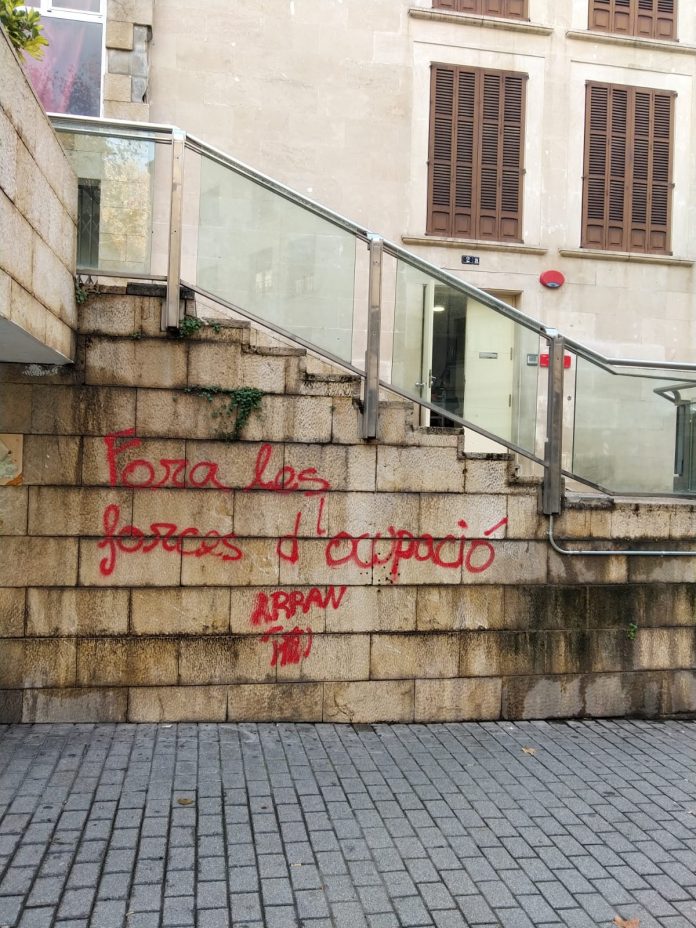 Fora les
forces d'ocupació
ARRAN